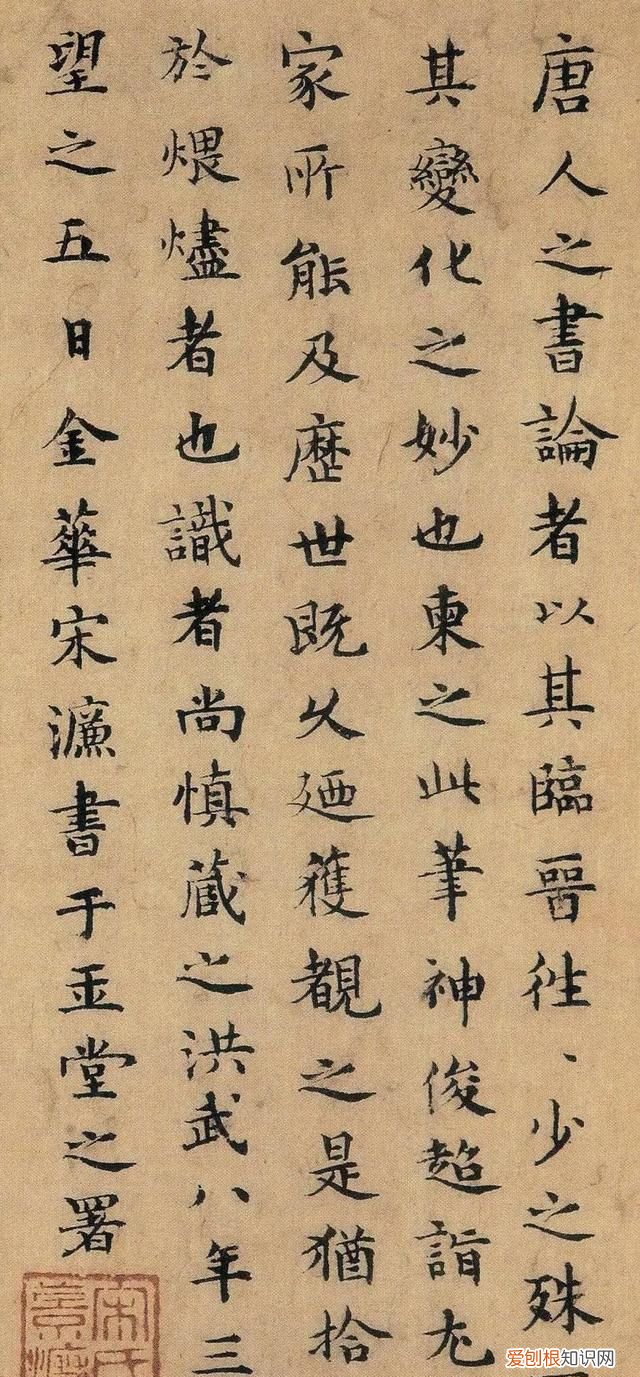 唐人之書論者以其臨晉往、少之殊
其變化之妙也柬之此筆神俊超詣尤
家所能及歷世既久廼獲覩之是猶拾
於煨燼者也識者尚慎藏之洪武八年三
望之五日金華宋濂書于玉堂之署
宋氏景濂
爱刨根知识网